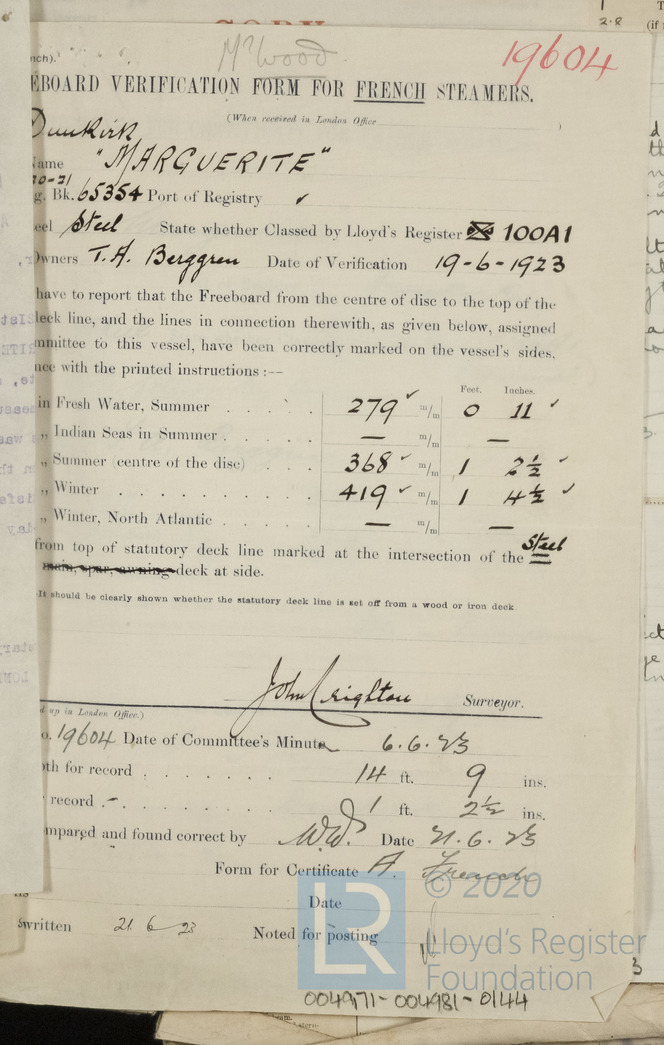 COPY
2.8
(if
nch).
Mr Wood
19604
EBOARD VERIFICATION FORM FOR FRENCH STEAMERS.
(When received in London Office )
Dunkirk
Name "MARGUERITE"
20-21
g. Bk. 65354 Port of Registry ✓
eel Steel State whether Classed by Lloyd's Register 100A1
Owners T. A. Berggren Date of Verification 19-6-1923
have to report that the Freeboard from the centre of disc to the top of the
deck line, and the lines in connection therewith, as given below, assigned
mmittee to this vessel, have been correctly marked on the vessel's sides,
nce with the printed instructions :—
Feet. Inches.
in Fresh Water, Summer . . . . 279 ✓ m/m 0 11 ✓
„ Indian Seas in Summer . . . . . — m/m —
„ Summer (centre of the disc) . . . 368 ✓ m/m 1 2½ ✓
„ Winter . . . . . . . . . . 419 ✓ m/m 1 4½ ✓
„ Winter, North Atlantic . . . . . — m/m —
from top of statutory deck line marked at the intersection of the Steel
main, spar, awning deck at side.
It should be clearly shown whether the statutory deck line is set off from a wood or iron deck.
John Crighton Surveyor.
d up in London Office.)
o. 19604 Date of Committee's Minute 6.6.23
oth for record . . . . . . . 14 ft. 9 ins.
record . . . . . . . . . 1 ft. 2½ ins.
mpared and found correct by W.W. Date 21.6.23
Form for Certificate A. French
Date
written 21 6 23 Noted for posting
LR
© 2020
Lloyd's Register
Foundation
3
004971-004981-0144